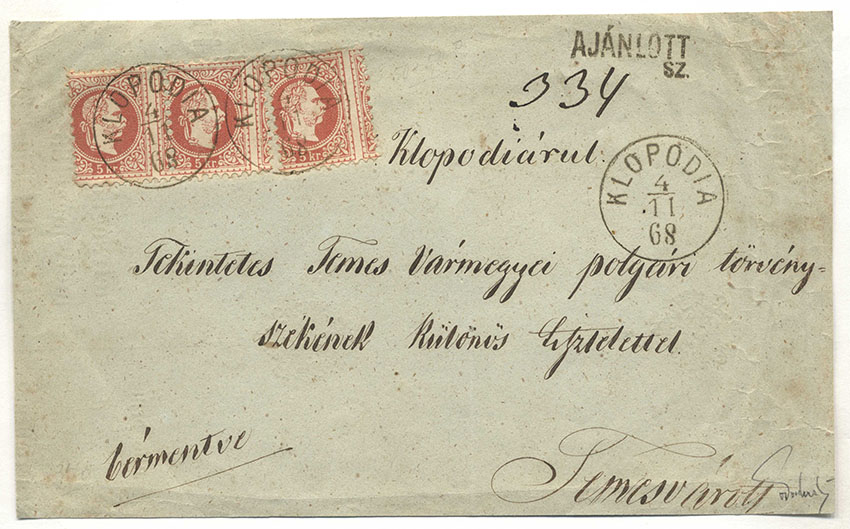 AJÁNLOTT
SZ.
334
KLOPODIA
4
11
68
KLOPODIA
5 kr
5 kr
5 kr
Klopodiárul.
KLOPODIA
4
11
68
Tekintetes Temes Vármegyei polgári törvény-
székének Különös tisztelettel
bérmentve
Temesvárott